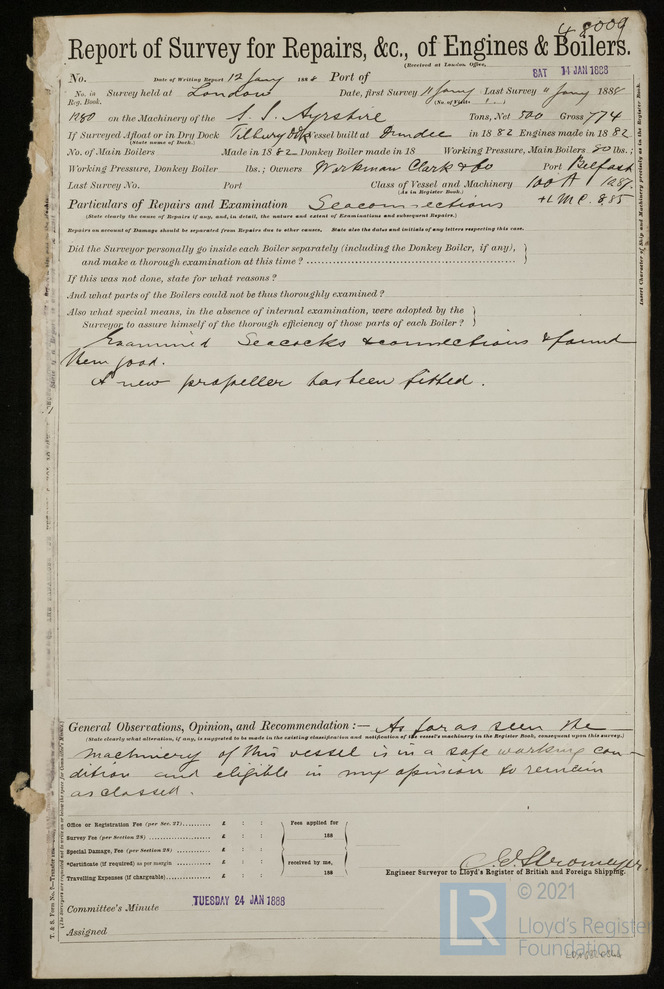 48009
Report of Survey for Repairs, &c., of Engines & Boilers.
(Received at London Office,
No. Date of Writing Report 12 Jany 1888 Port of SAT 14 JAN 1888
No. in Reg. Book. Survey held at London Date, first Survey 11 Jany Last Survey 11 Jany 1888
(No. of Visits 1)
1280 on the Machinery of the S.S. Ayrshire Tons, Net 500 Gross 774
If Surveyed Afloat or in Dry Dock Tilbury Dk Vessel built at Dundee in 1882 Engines made in 1882
(State name of Dock.)
No. of Main Boilers Made in 1882 Donkey Boiler made in 18 Working Pressure, Main Boilers 80 lbs.;
Working Pressure, Donkey Boiler lbs.; Owners Workman Clark & Co Port Belfast
Last Survey No. Port Class of Vessel and Machinery 100 A 1 12.87.
(As in Register Book.)
Particulars of Repairs and Examination Seaconnections +LMC. 8,85
(State clearly the cause of Repairs if any, and, in detail, the nature and extent of Examinations and subsequent Repairs.)
Repairs on account of Damage should be separated from Repairs due to other causes. State also the dates and initials of any letters respecting this case.
Did the Surveyor personally go inside each Boiler separately (including the Donkey Boiler, if any),
and make a thorough examination at this time?
If this was not done, state for what reasons?
And what parts of the Boilers could not be thus thoroughly examined?
Also what special means, in the absence of internal examination, were adopted by the
Surveyor to assure himself of the thorough efficiency of those parts of each Boiler?
Examined Seacocks & connections & found
them good.
A new propeller has been fitted.
General Observations, Opinion, and Recommendation:— As far as seen the
(State clearly what alteration, if any, is suggested to be made in the existing classification and notification of the vessel's machinery in the Register Book, consequent upon this survey.)
machinery of this vessel is in a safe working con-
dition and eligible in my opinion to remain
as classed.
Office or Registration Fee (per Sec. 27) £ : : Fees applied for
Survey Fee (per Section 28) £ : : 188
Special Damage, Fee (per Section 28) £ : :
*Certificate (if required) as per margin £ : : received by me,
Travelling Expenses (if chargeable) £ : : 188
C.E. Stromeyer.
Engineer Surveyor to Lloyd's Register of British and Foreign Shipping.
Committee's Minute TUESDAY 24 JAN 1888
Assigned
Insert Character of Ship and Machinery precisely as in the Register Book.
LR
© 2021
Lloyd's Register
Foundation